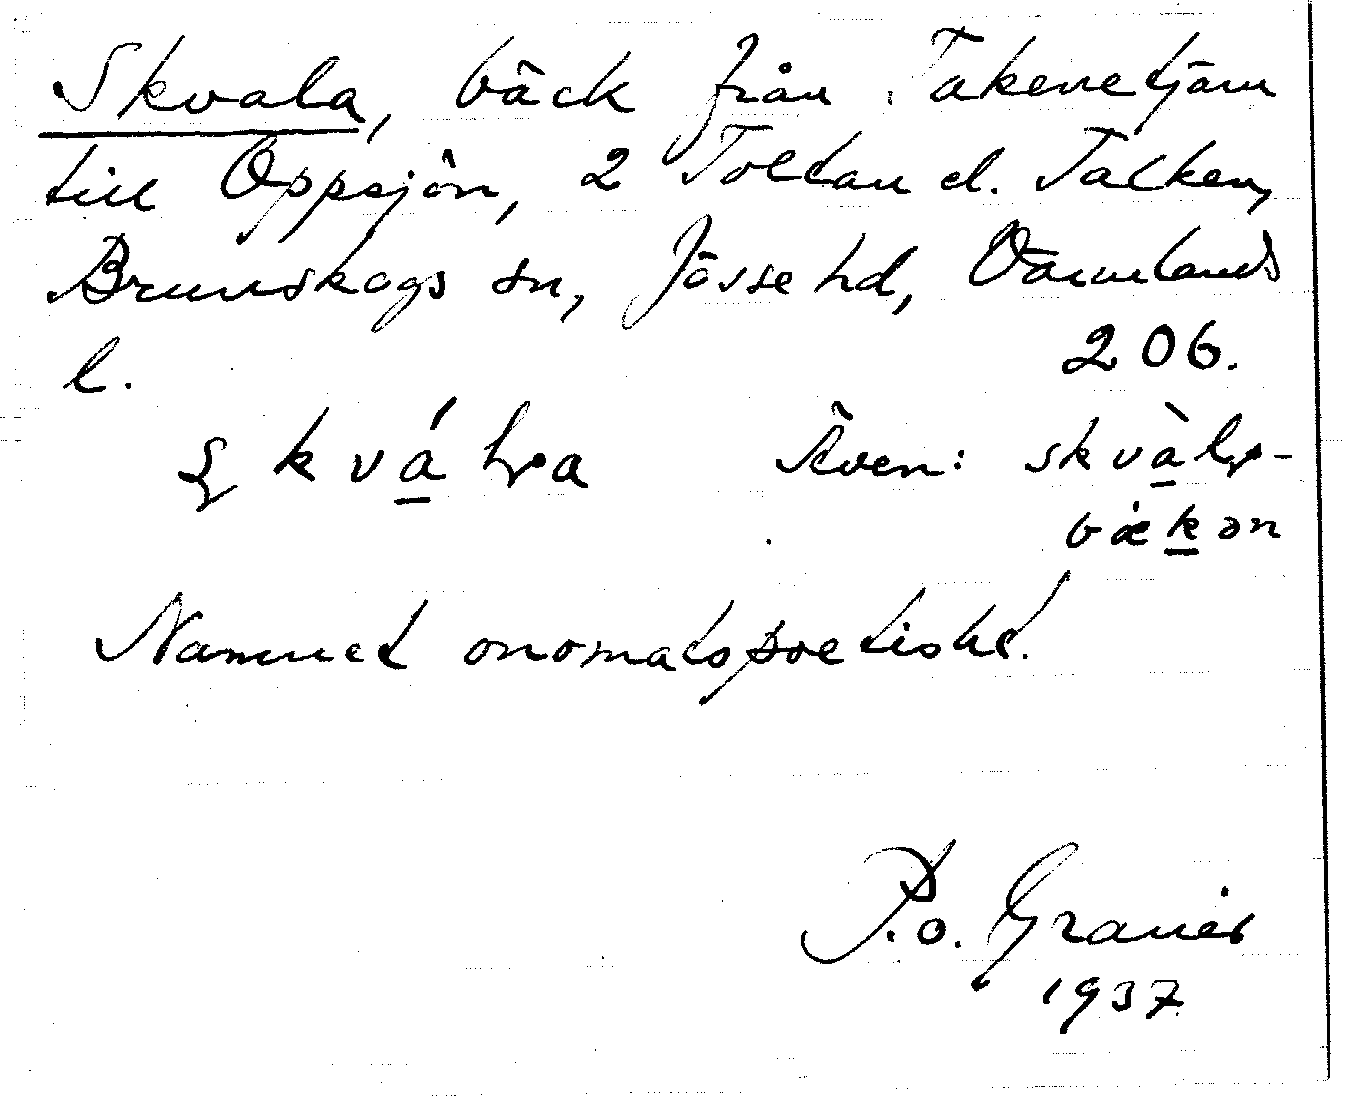 Skvala, bäck från Takenetjärn
till Öppsjön, 2 Toltan el. Talken,
Brunskogs sn, Jösse hd, Värmlands
l. 206.
Även:
Namnet onomatopoetiskt.
P.o. Granér
1937